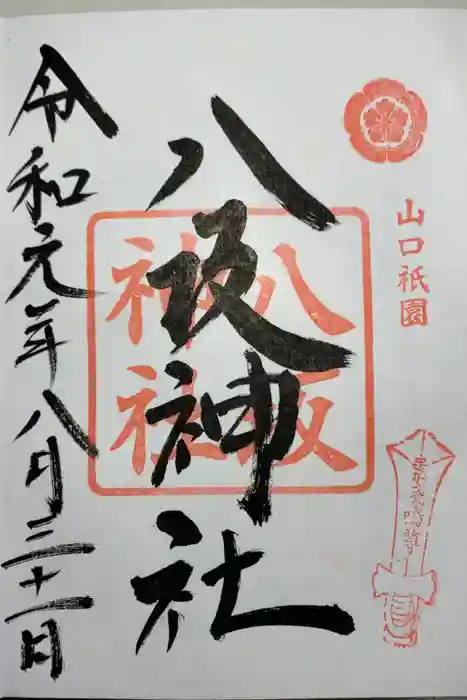 山口祇園
八坂神社
八坂
神社
令和元年八月三十一日